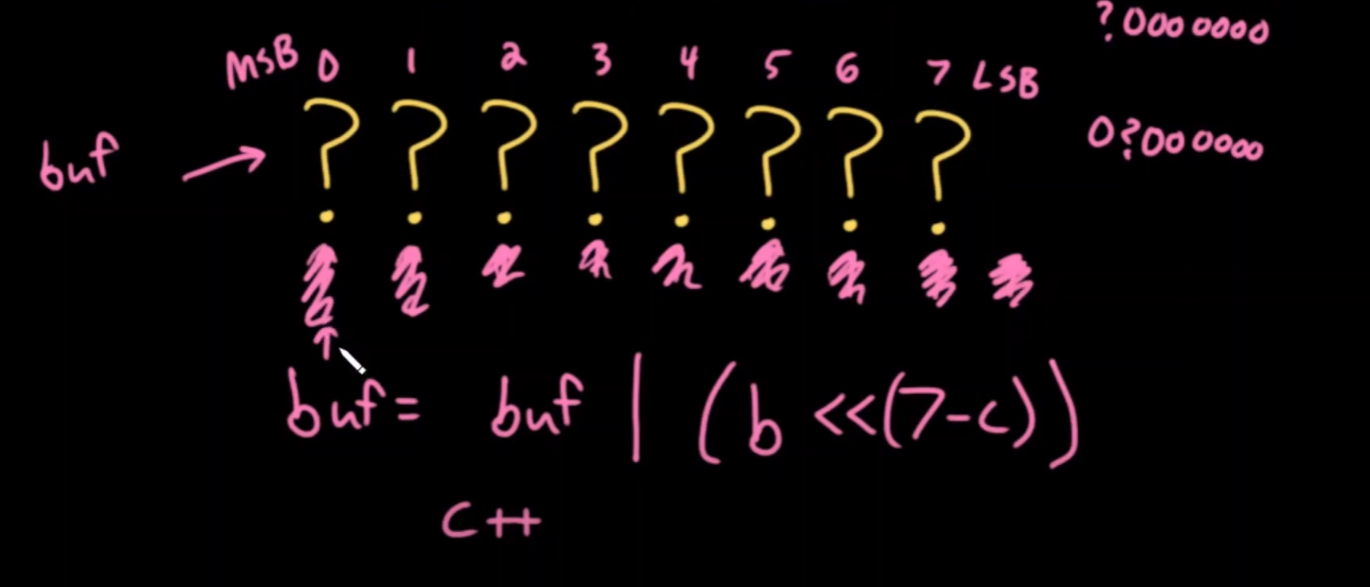 MSB 0 1 2 3 4 5 6 7 LSB
?0000000
buf → ? ? ? ? ? ? ? ?
0?000000
buf = buf | (b <<(7-c))
c++